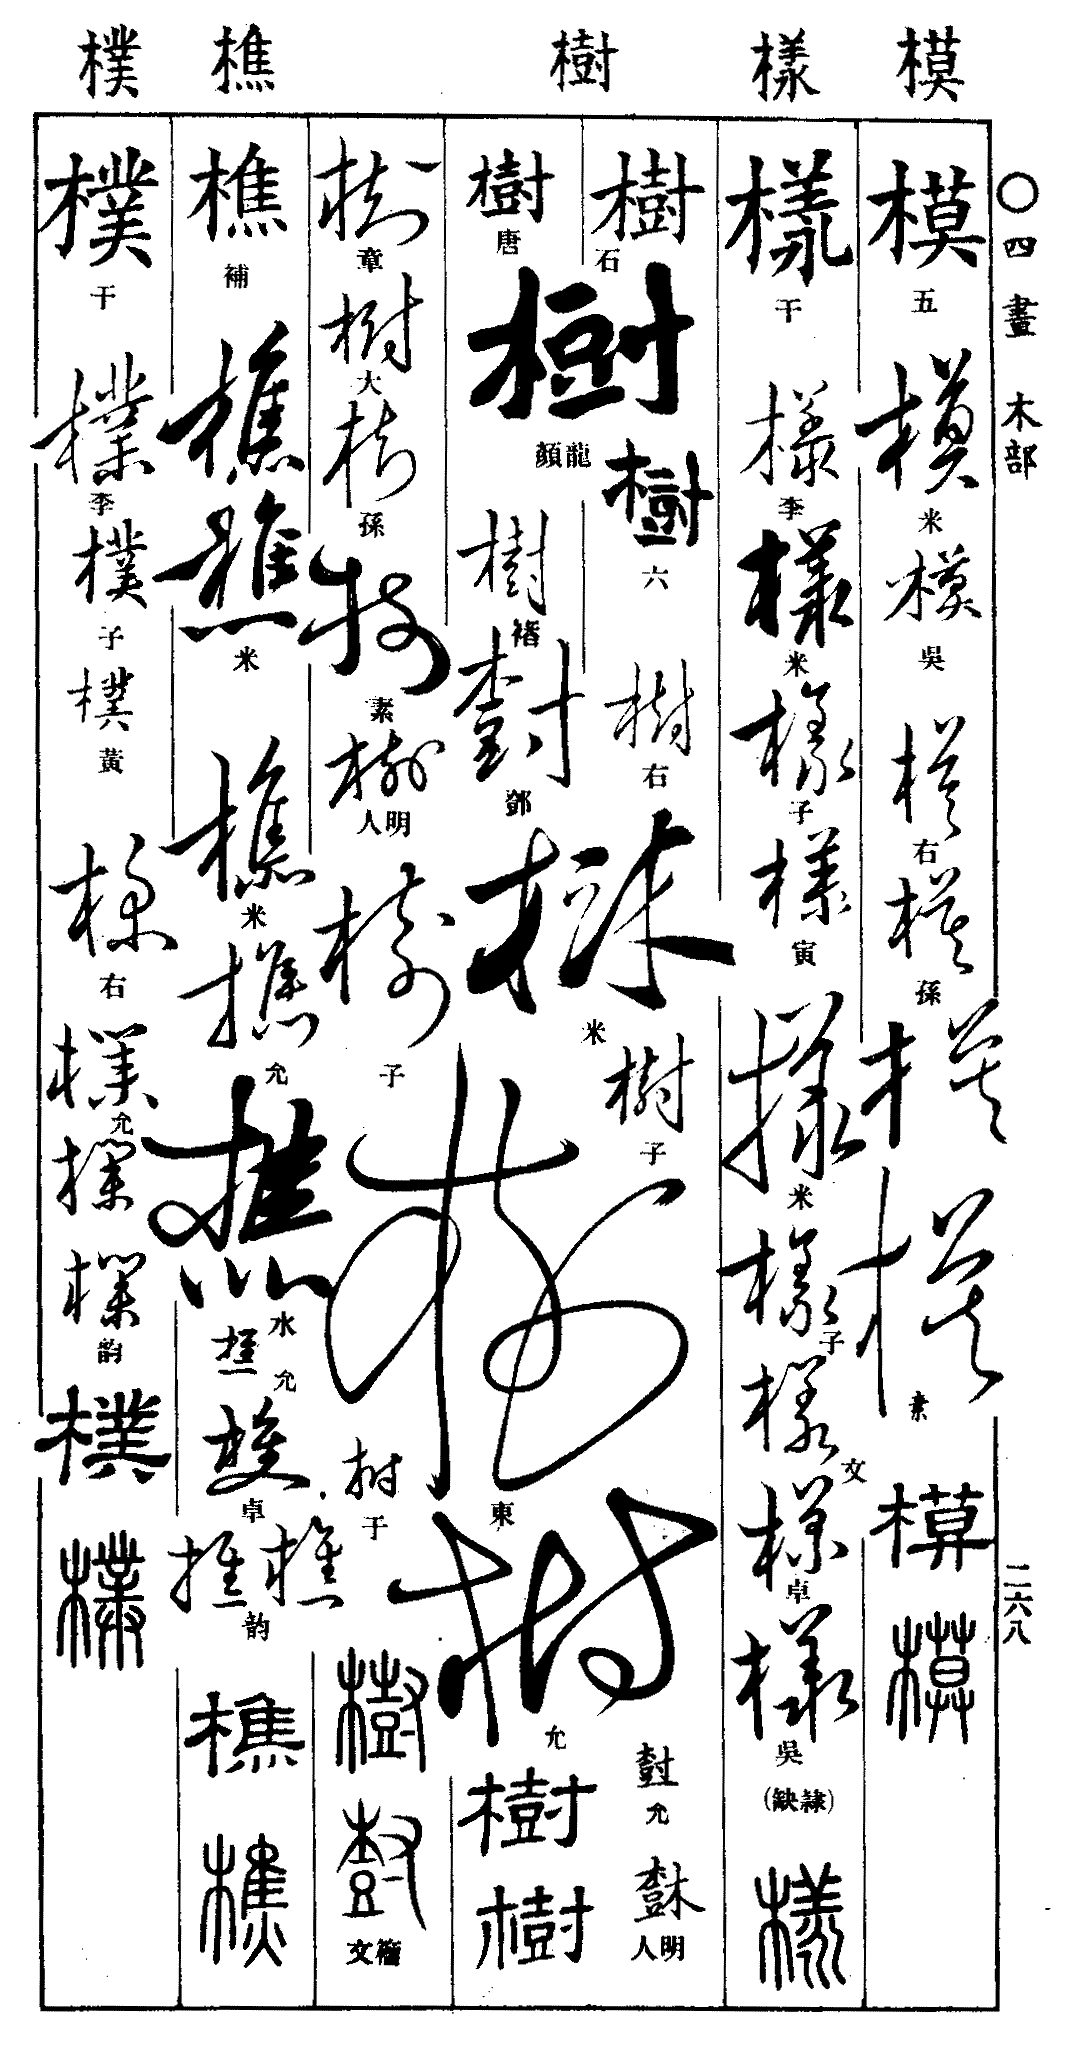 模 樣 樹 樵 樸
○四畫 木部
二六八
模 五
模 米
模 吳
模 右
模 孫
模
模 素
模
模
樣 干
樣 李
樣 米
樣 子
樣 寅
樣 米
樣 子
樣 文
樣 卓
樣 吳
(隸缺)
樣
樹 石
樹 六
樹 右
樹 子
樹 允
樹 明人
樹 唐
樹 龍顏
樹 褚
樹 鄧
樹 米
樹 東
樹 允
樹
樹
樹 章
樹 大
樹 孫
樹 素
樹 明人
樹 子
樹 于
樹
樹 籀文
樵 補
樵
樵 米
樵 米
樵 允
樵 水
樵 允
樵 卓
樵 樵 韵
樵
樵
樸 干
樸 李
樸 子
樸 黃
樸 右
樸 允
樸
樸 韵
樸
樸